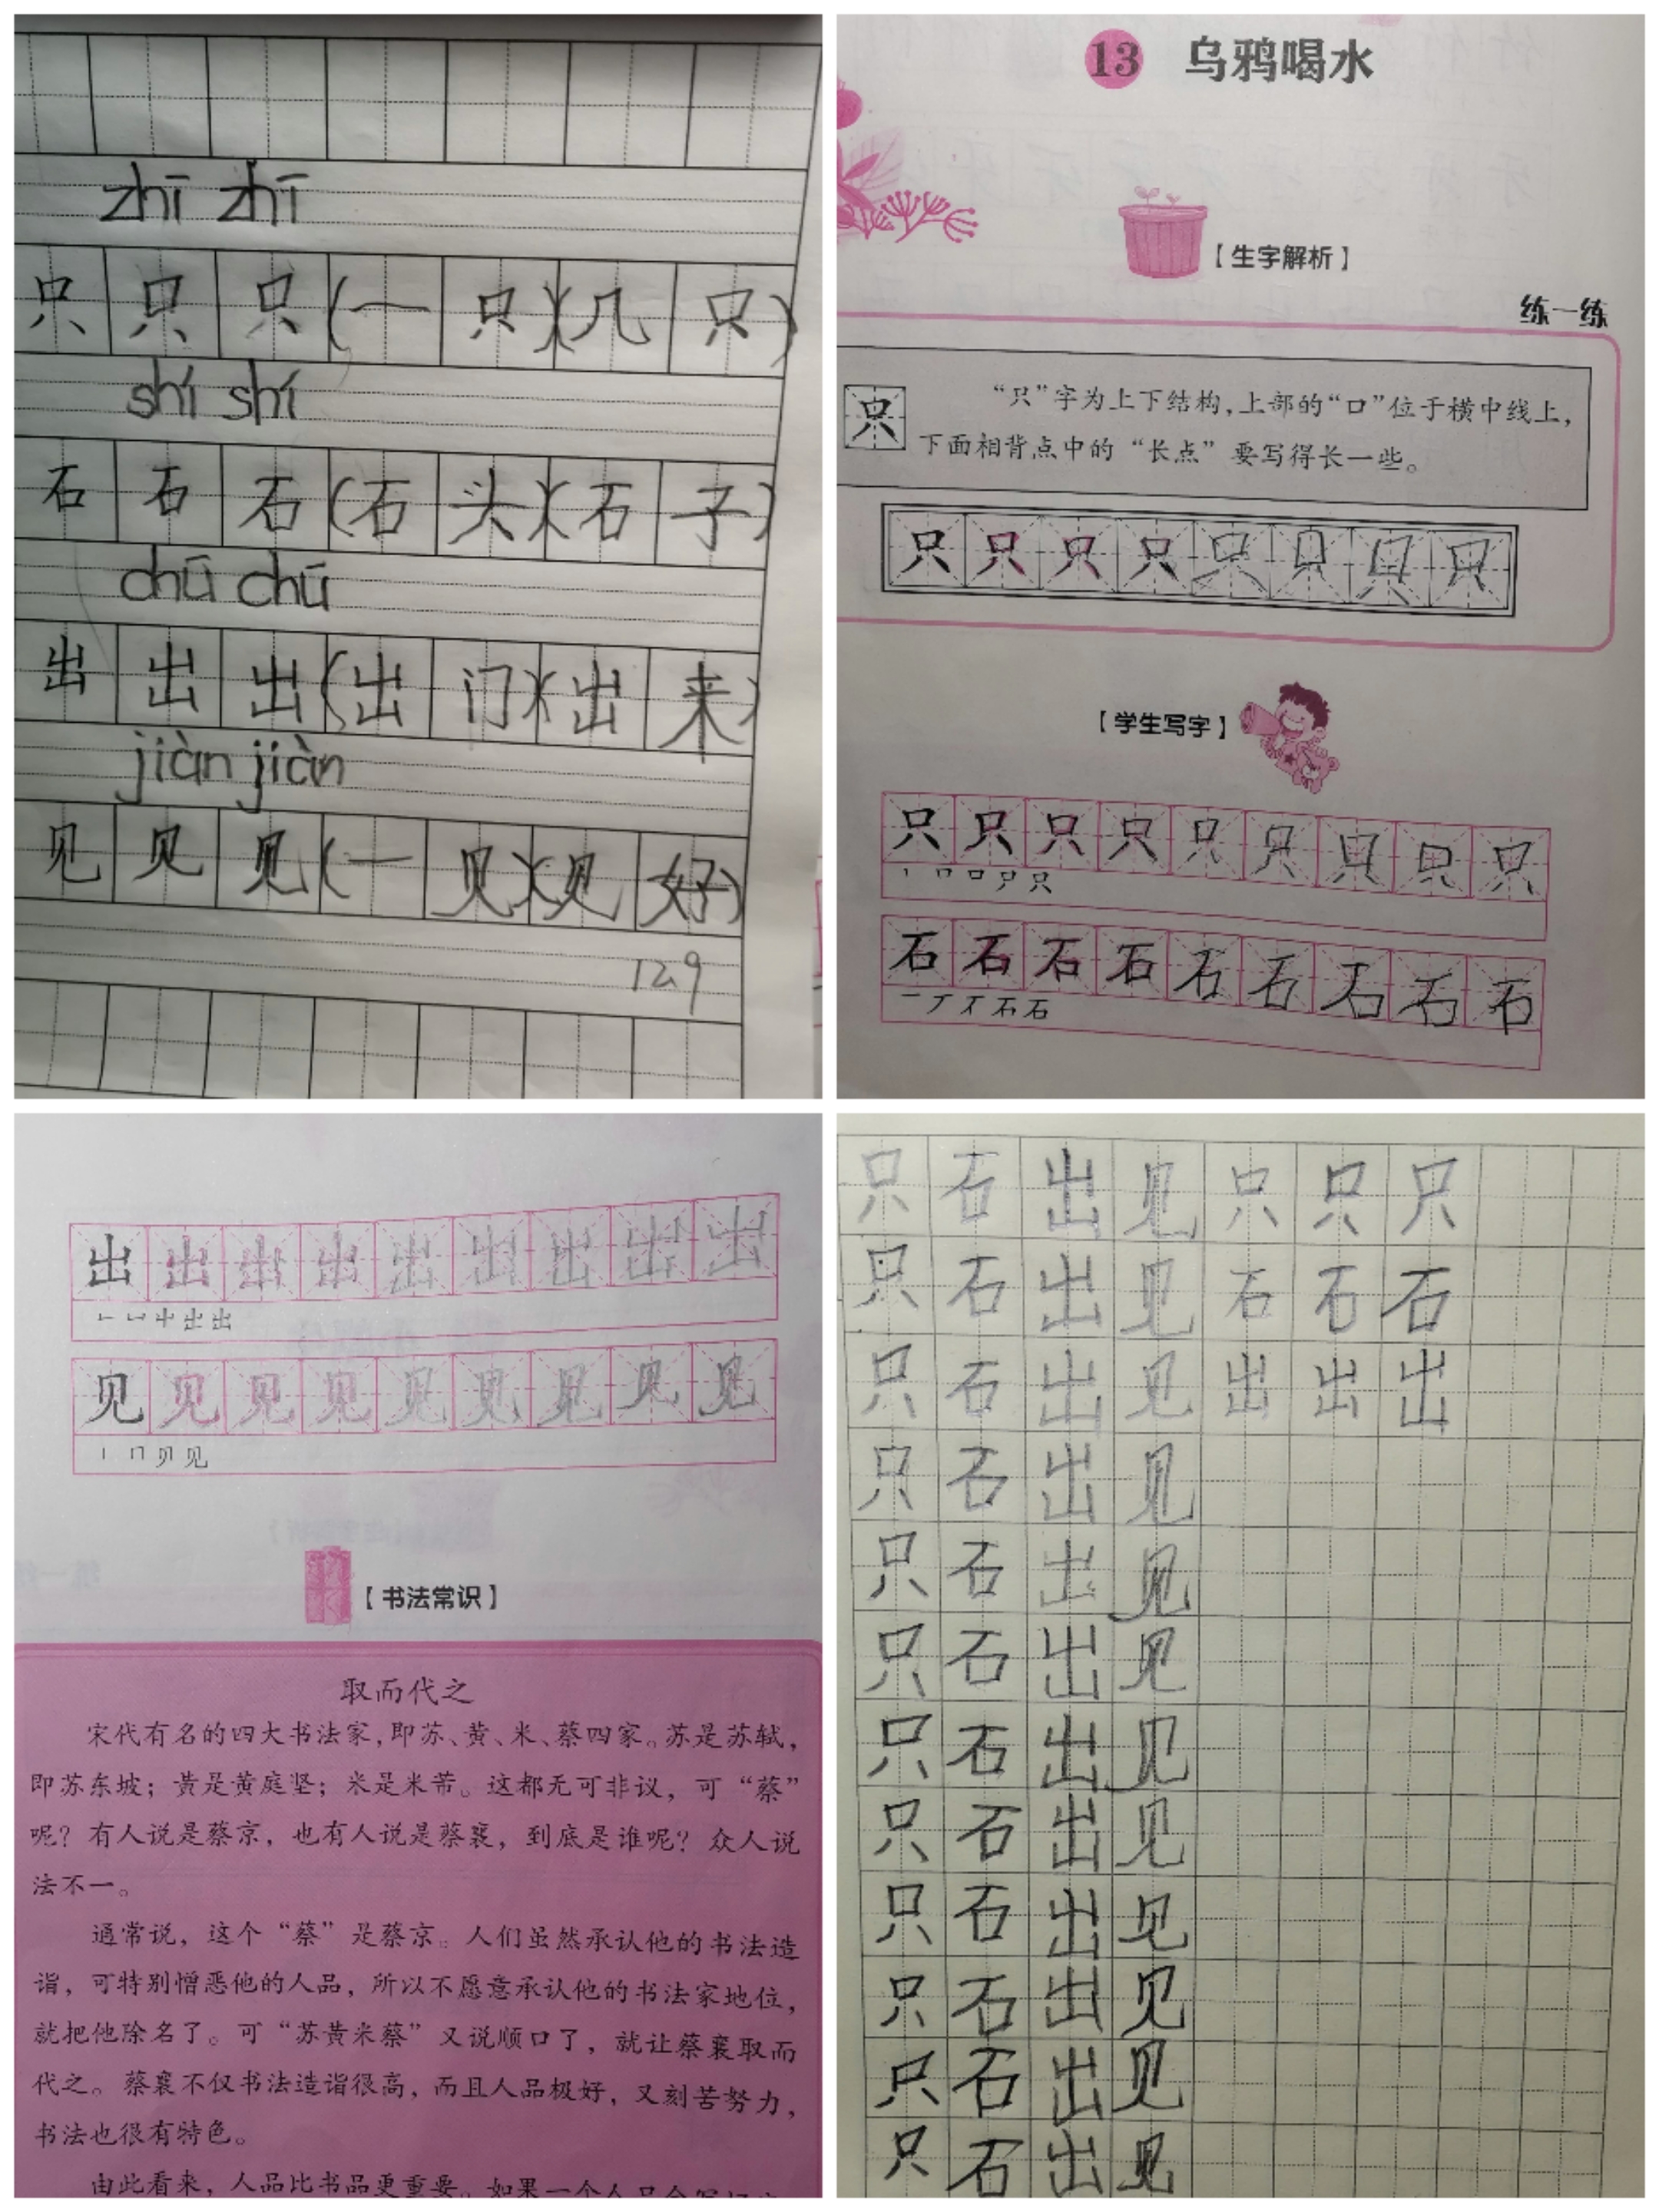 zhī zhī
只只只(一只)(几只)
shí shí
石石石(石头)(石子)
chū chū
出出出(出门)(出来)
jiàn jiàn
见见见(一见)(见好)
129
13 乌鸦喝水
【生字解析】
练一练
只 “只”字为上下结构,上部的“口”位于横中线上,
下面相背点中的“长点”要写得长一些。
只只只只只只只只
【学生写字】
只只只只只只只只只
丨口口尸只
石石石石石石石石石
一丆不石石
出出出出出出出出出
见见见见见见见见见
丨冂贝见
【书法常识】
取而代之
宋代有名的四大书法家,即苏、黄、米、蔡四家。苏是苏轼,
即苏东坡;黄是黄庭坚;米是米芾。这都无可非议,可“蔡”
呢?有人说是蔡京,也有人说是蔡襄,到底是谁呢?众人说
法不一。
通常说,这个“蔡”是蔡京。人们虽然承认他的书法造
诣,可特别憎恶他的人品,所以不愿意承认他的书法家地位,
就把他除名了。可“苏黄米蔡”又说顺口了,就让蔡襄取而
代之。蔡襄不仅书法造诣很高,而且人品极好,又刻苦努力,
书法也很有特色。
由此看来,人品比书品更重要。如果一个人只会写好
只石出见只只只
只石出见石石石
只石出见出出出
只石出见
只石出见
只石出见
只石出见
只石出见
只石出见
只石出见
只石出见
只石出见